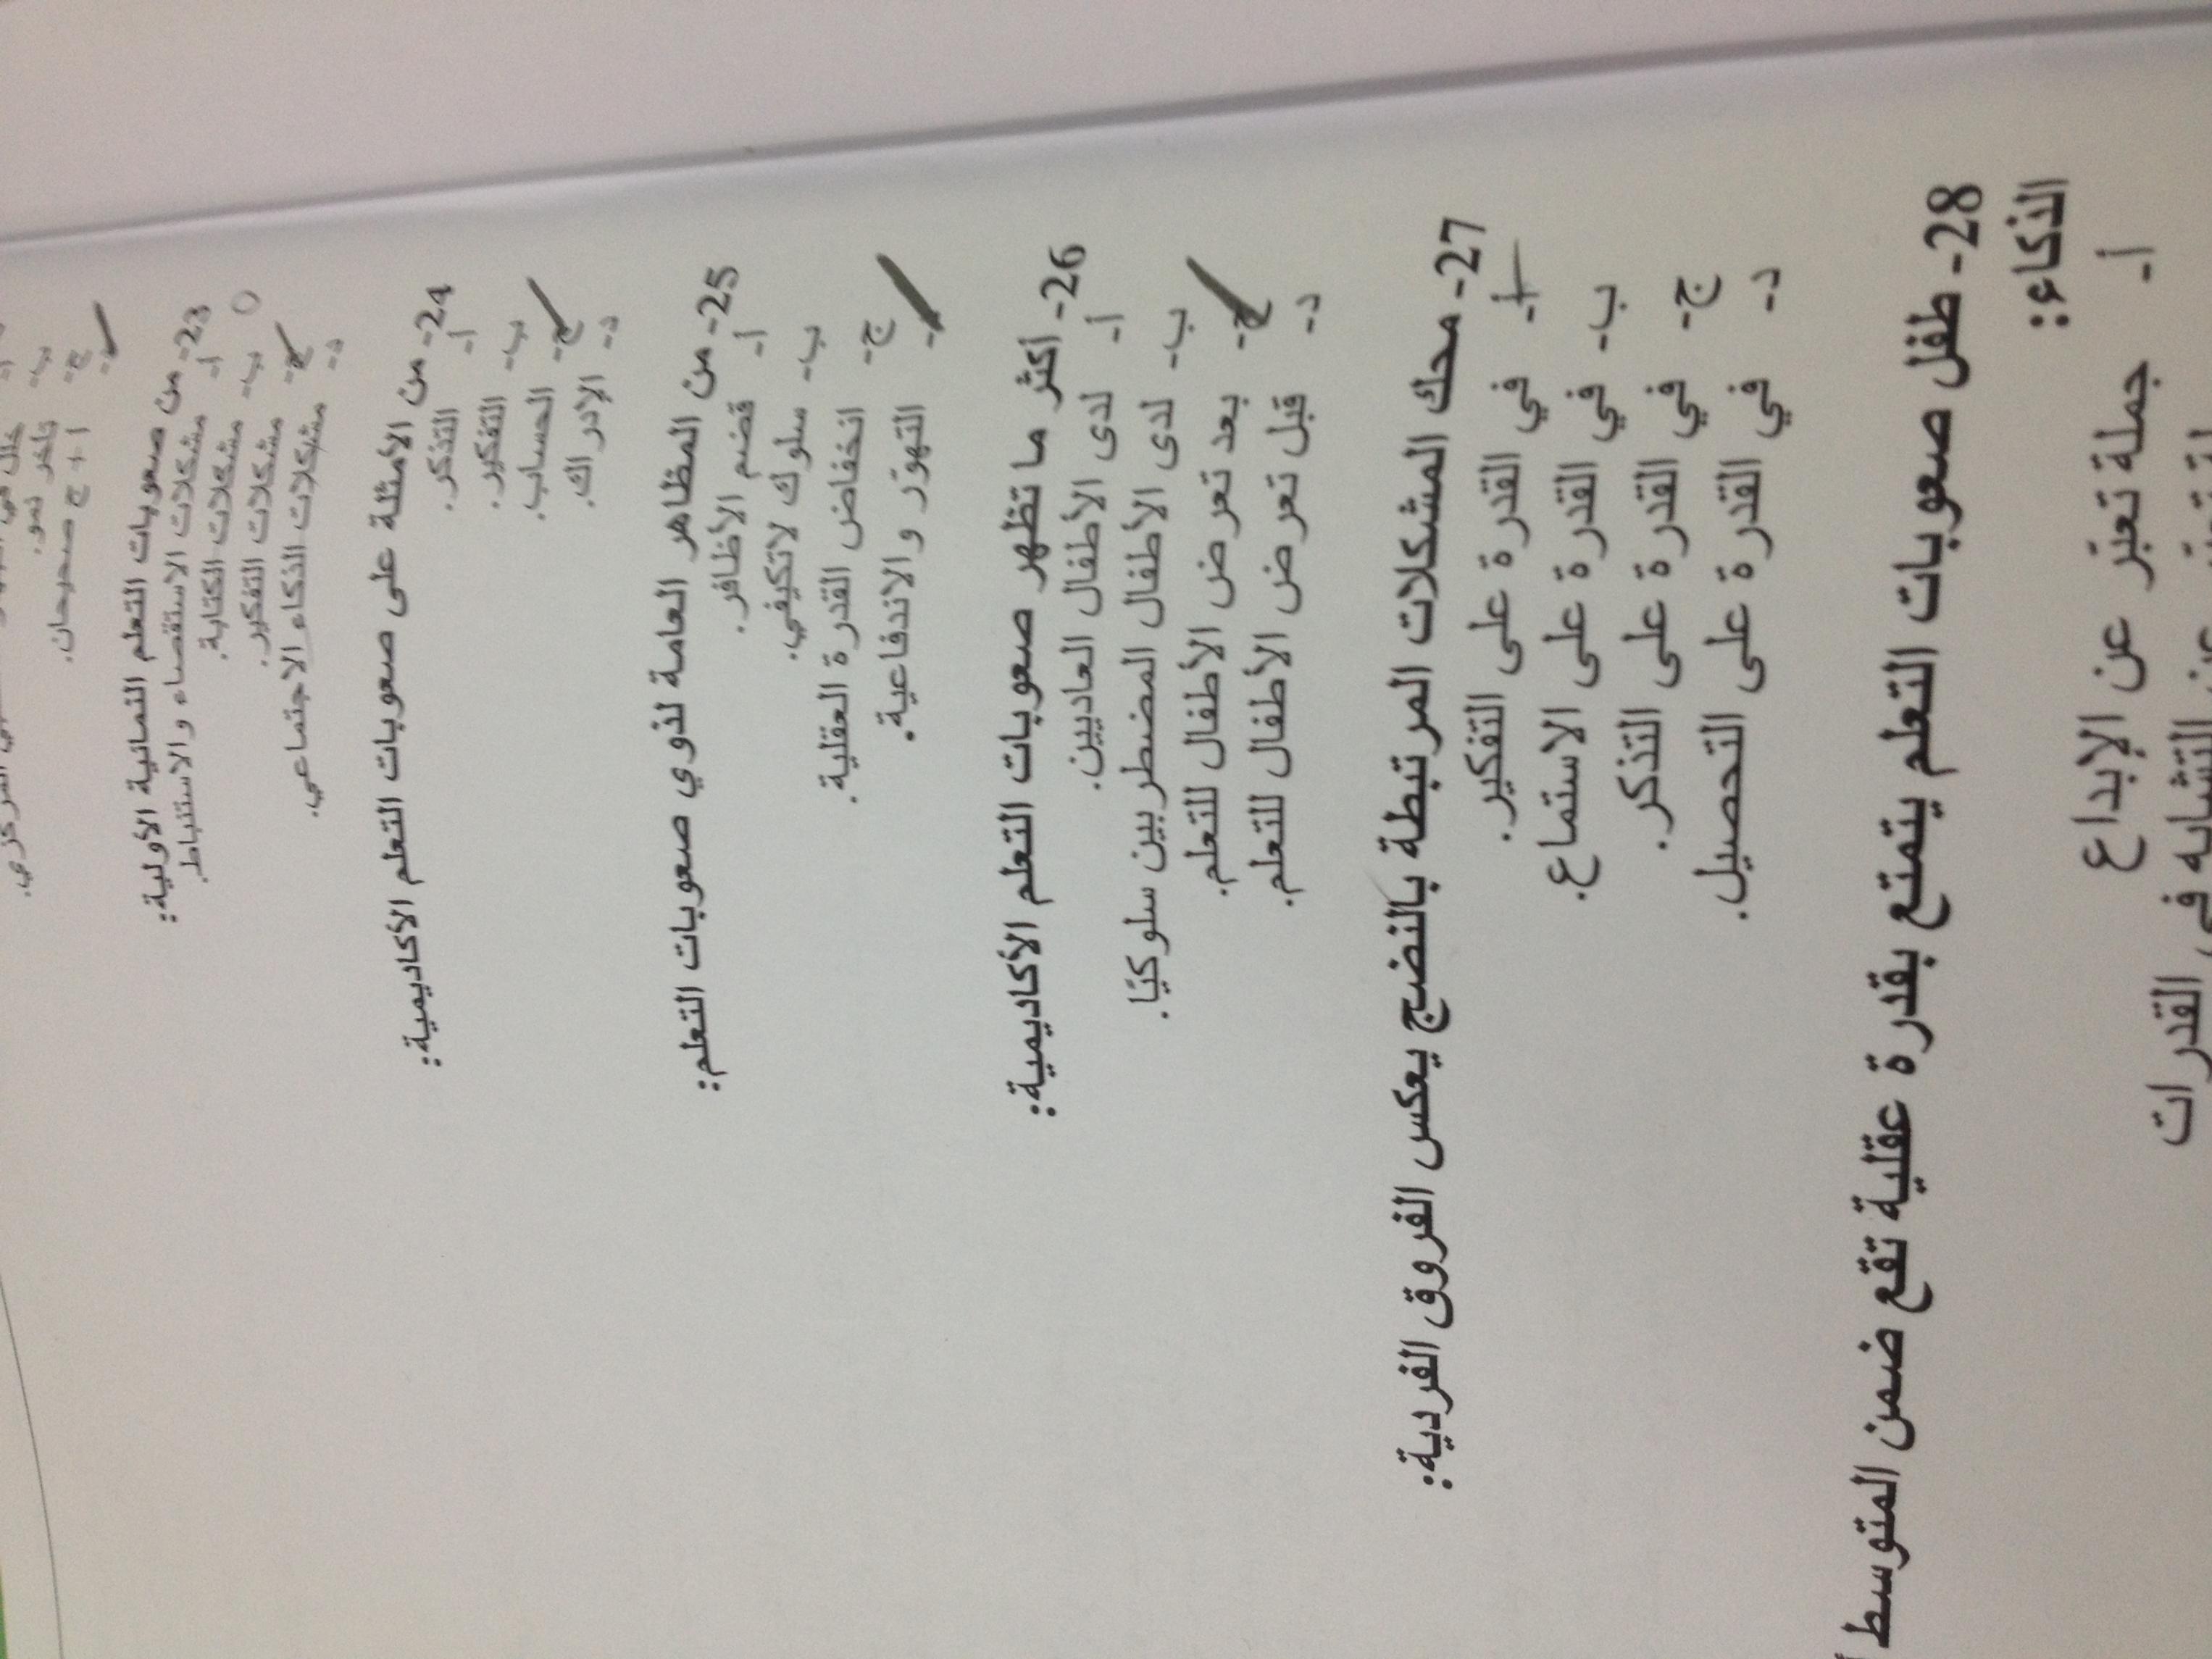 ب-
ج- تأخر نمو.
ا + ج صحيحان.
23- من صعوبات التعلم النمائية الأولية:
أ- مشكلات الاستقصاء والاستنباط.
ب- مشكلات الكتابة.
ج- مشكلات التفكير.
د- مشكلات الذكاء الاجتماعي.
24- من الأمثلة على صعوبات التعلم الأكاديمية:
أ- التذكر.
ب- التفكير.
ج- الحساب.
د- الإدراك.
25- من المظاهر العامة لذوي صعوبات التعلم:
أ- قضم الأظافر.
ب- سلوك لاتكيفي.
ج- انخفاض القدرة العقلية.
التهور والاندفاعية.
26- أكثر ما تظهر صعوبات التعلم الأكاديمية:
أ- لدى الأطفال العاديين.
ب- لدى الأطفال المضطربين سلوكيًا.
ج- بعد تعرض الأطفال للتعلم.
د- قبل تعرض الأطفال للتعلم.
27- محك المشكلات المرتبطة بالنضج يعكس الفروق الفردية:
أ- في القدرة على التفكير.
ب- في القدرة على الاستماع.
ج- في القدرة على التذكر.
د- في القدرة على التحصيل.
28- طفل صعوبات التعلم يتمتع بقدرة عقلية تقع ضمن المتوسط
الذكاء:
أ- جملة تعبّر عن الإبداع
عن التشابه في القدرات